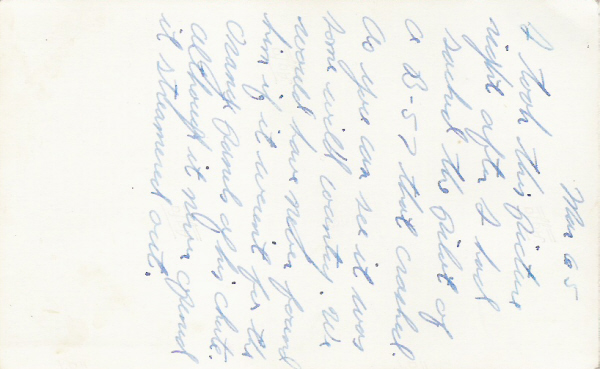 Mar 65
I took this picture
right after I had
sached the Pilot of
a B-57 that crashed.
As you can see it was
some wild country. We
would have never found
him if it wasint for the
orange Panels of his chute.
although it never opened
it streamed out.